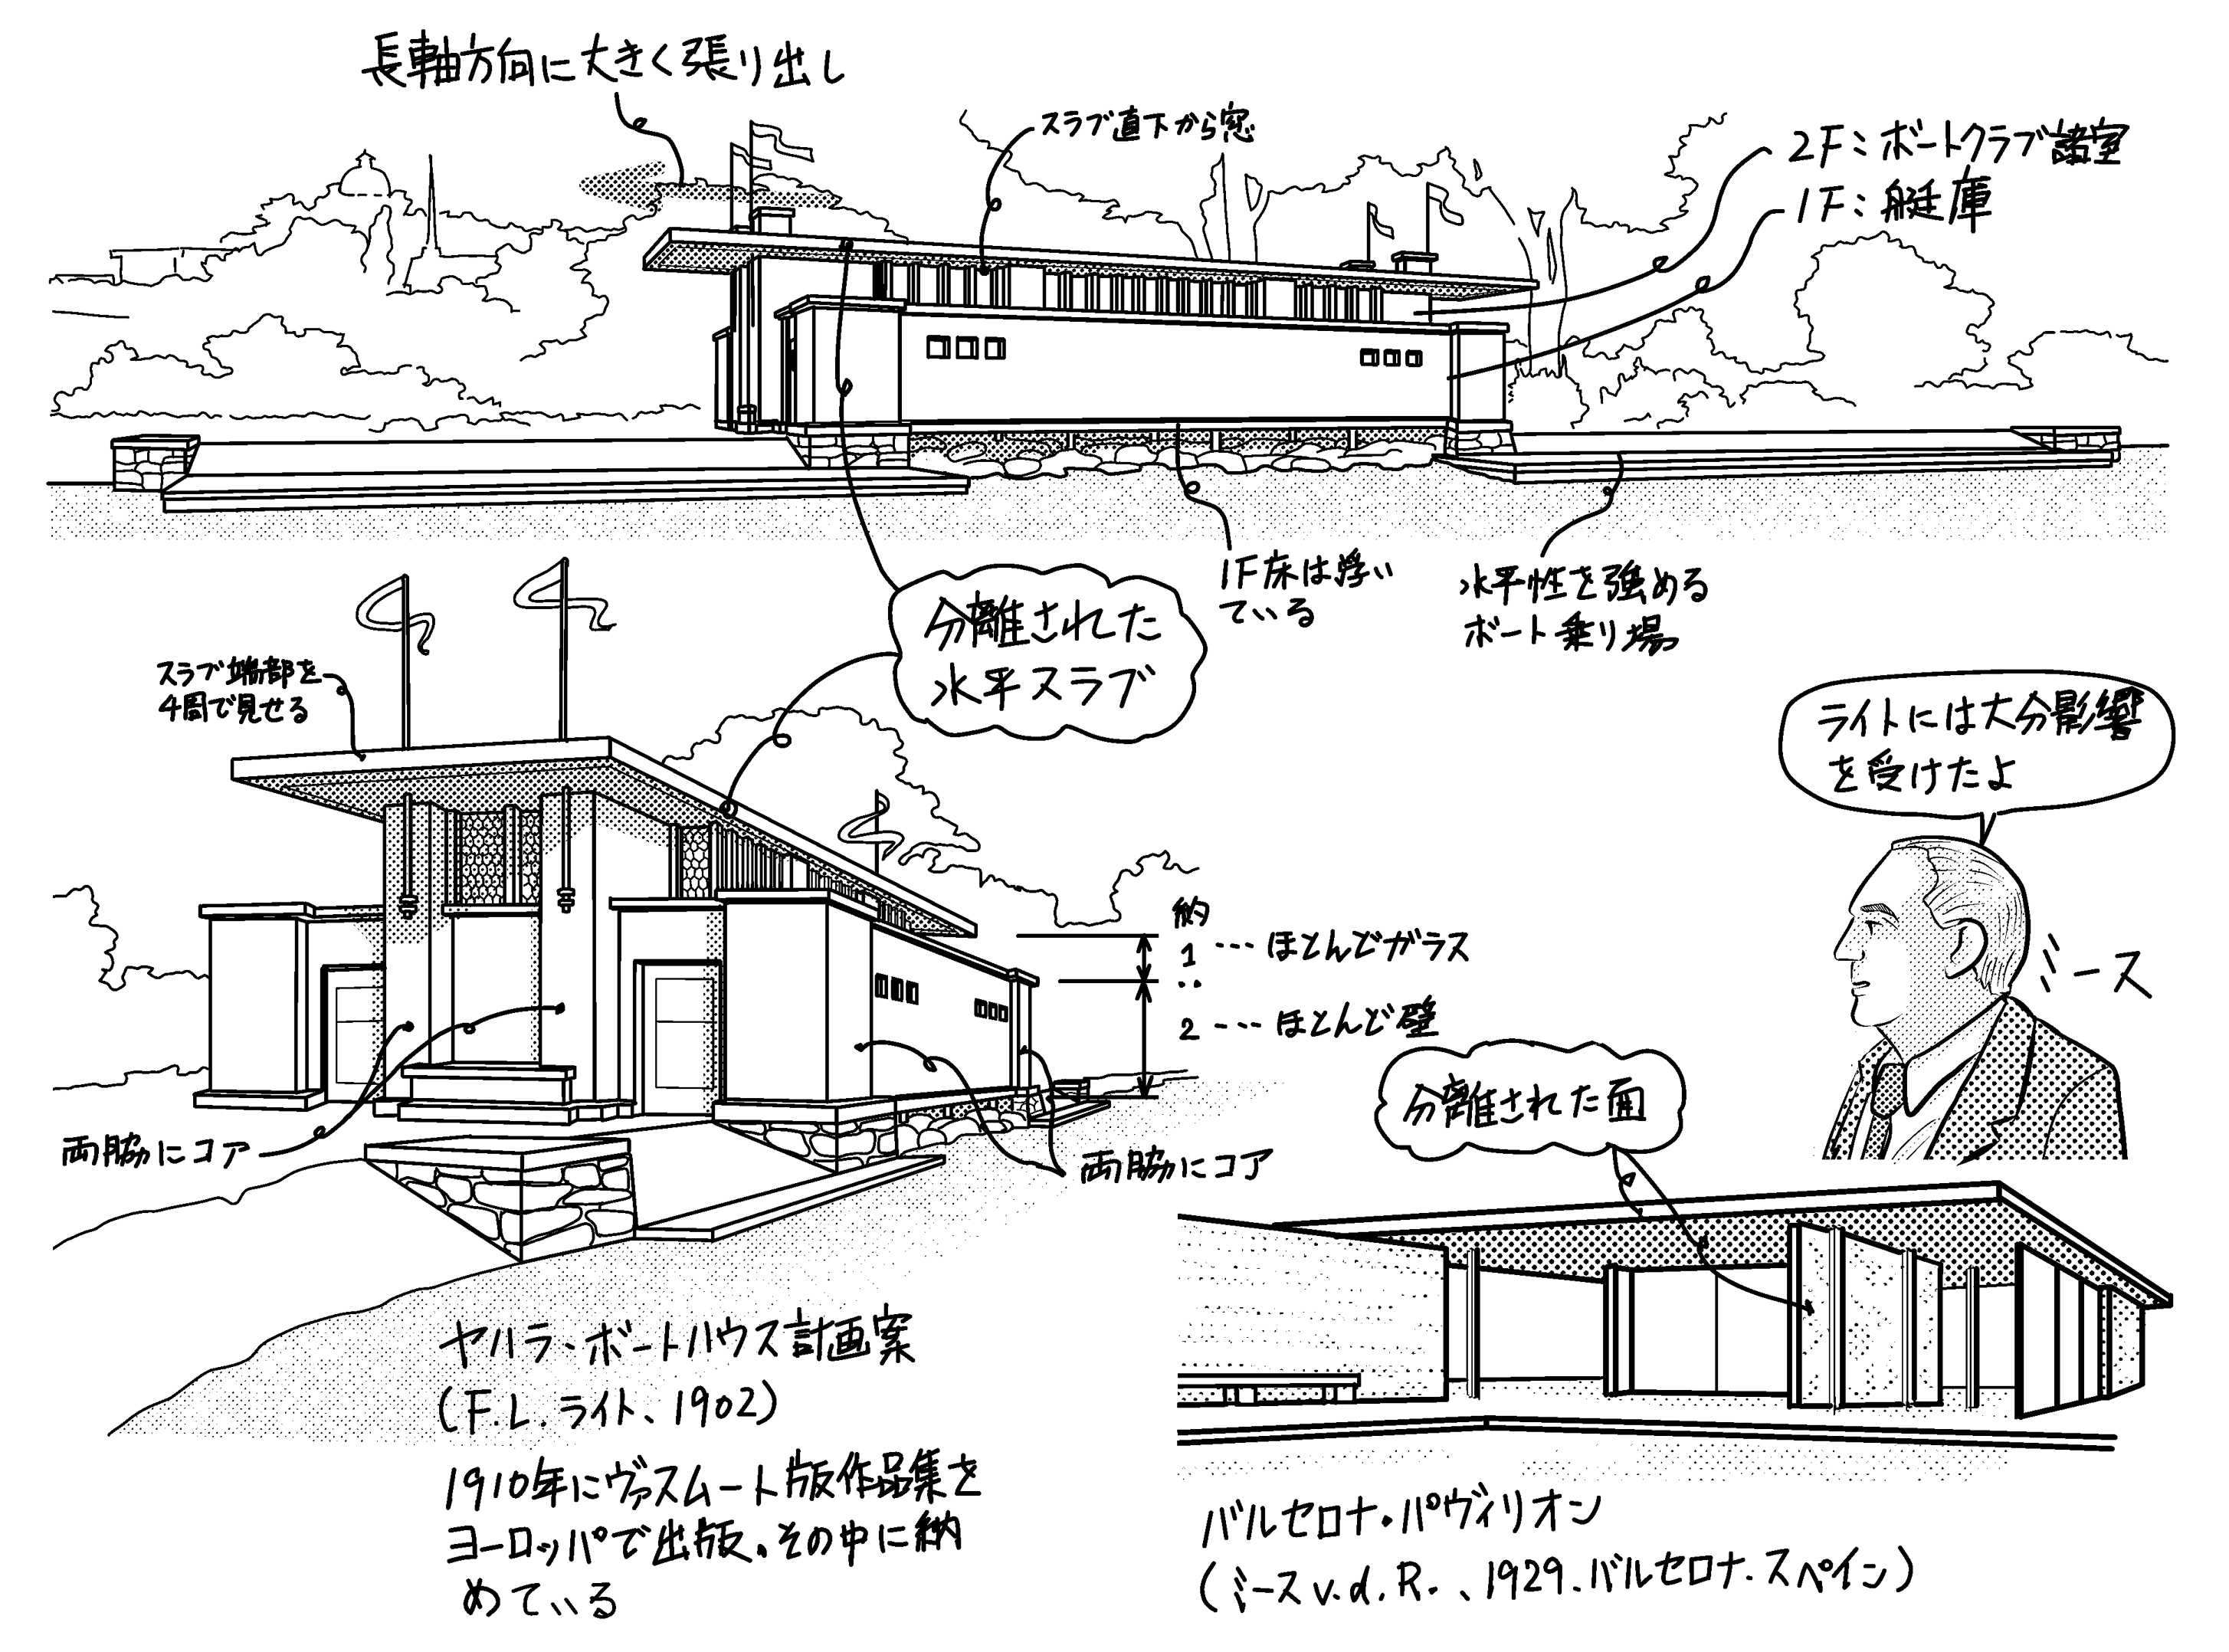 長軸方向に大きく張り出し
スラブ直下から窓
2F:ボートクラブ諸室
1F:艇庫
1F床は浮い
ている
水平性を強める
ボート乗り場
分離された
水平スラブ
スラブ端部を
4周で見せる
ライトには大分影響
を受けたよ
ミース
約
1…ほとんどガラス
:
2…ほとんど壁
両脇にコア
両脇にコア
分離された面
ヤハラ・ボートハウス計画案
(F.L.ライト、1902)
1910年にヴァスムート版作品集を
ヨーロッパで出版。その中に納
めている
バルセロナ・パヴィリオン
(ミースv.d.R.、1929.バルセロナ.スペイン)